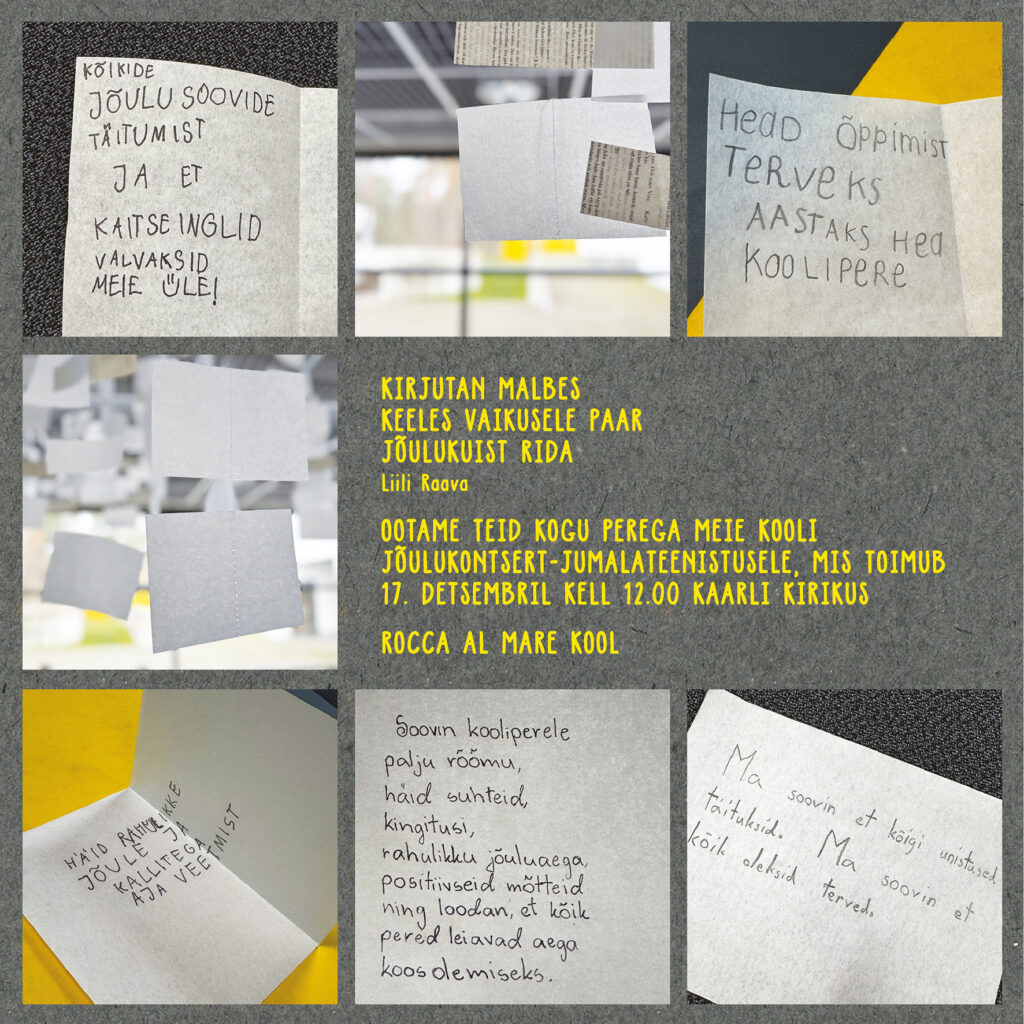 KÕIKIDE
JÕULU SOOVIDE
TÄITUMIST
JA ET
KAITSE INGLID
VALVAKSID
MEIE ÜLE!
HEAD ÕPPIMIST
TERVEKS
AASTAKS HEA
KOOLIPERE
KIRJUTAN MALBES
KEELES VAIKUSELE PAAR
JÕULUKUIST RIDA
Liili Raava
OOTAME TEID KOGU PEREGA MEIE KOOLI
JÕULUKONTSERT-JUMALATEENISTUSELE, MIS TOIMUB
17. DETSEMBRIL KELL 12.00 KAARLI KIRIKUS
ROCCA AL MARE KOOL
HÄID RAHULIKKE
JÕULE JA
KALLITEGA
AJA VEETMIST
Soovin kooliperele
palju rõõmu,
häid suhteid,
kingitusi,
rahulikku jõuluaega,
positiivseid mõtteid
ning loodan, et kõik
pered leiavad aega
koosolemiseks.
Ma soovin et kõigi unistused
täituksid. Ma soovin et
kõik oleksid terved.